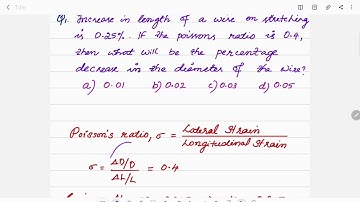 Title
Q1. Increase in length of a wire on stretching
is 0.25%. If the poissons ratio is 0.4,
then what will be the percentage
decrease in the diameter of the wire?
a) 0.01 b) 0.02 c) 0.03 d) 0.05
Poisson's ratio, σ = Lateral Strain / Longitudinal Strain
σ = ΔD/D / ΔL/L = 0.4